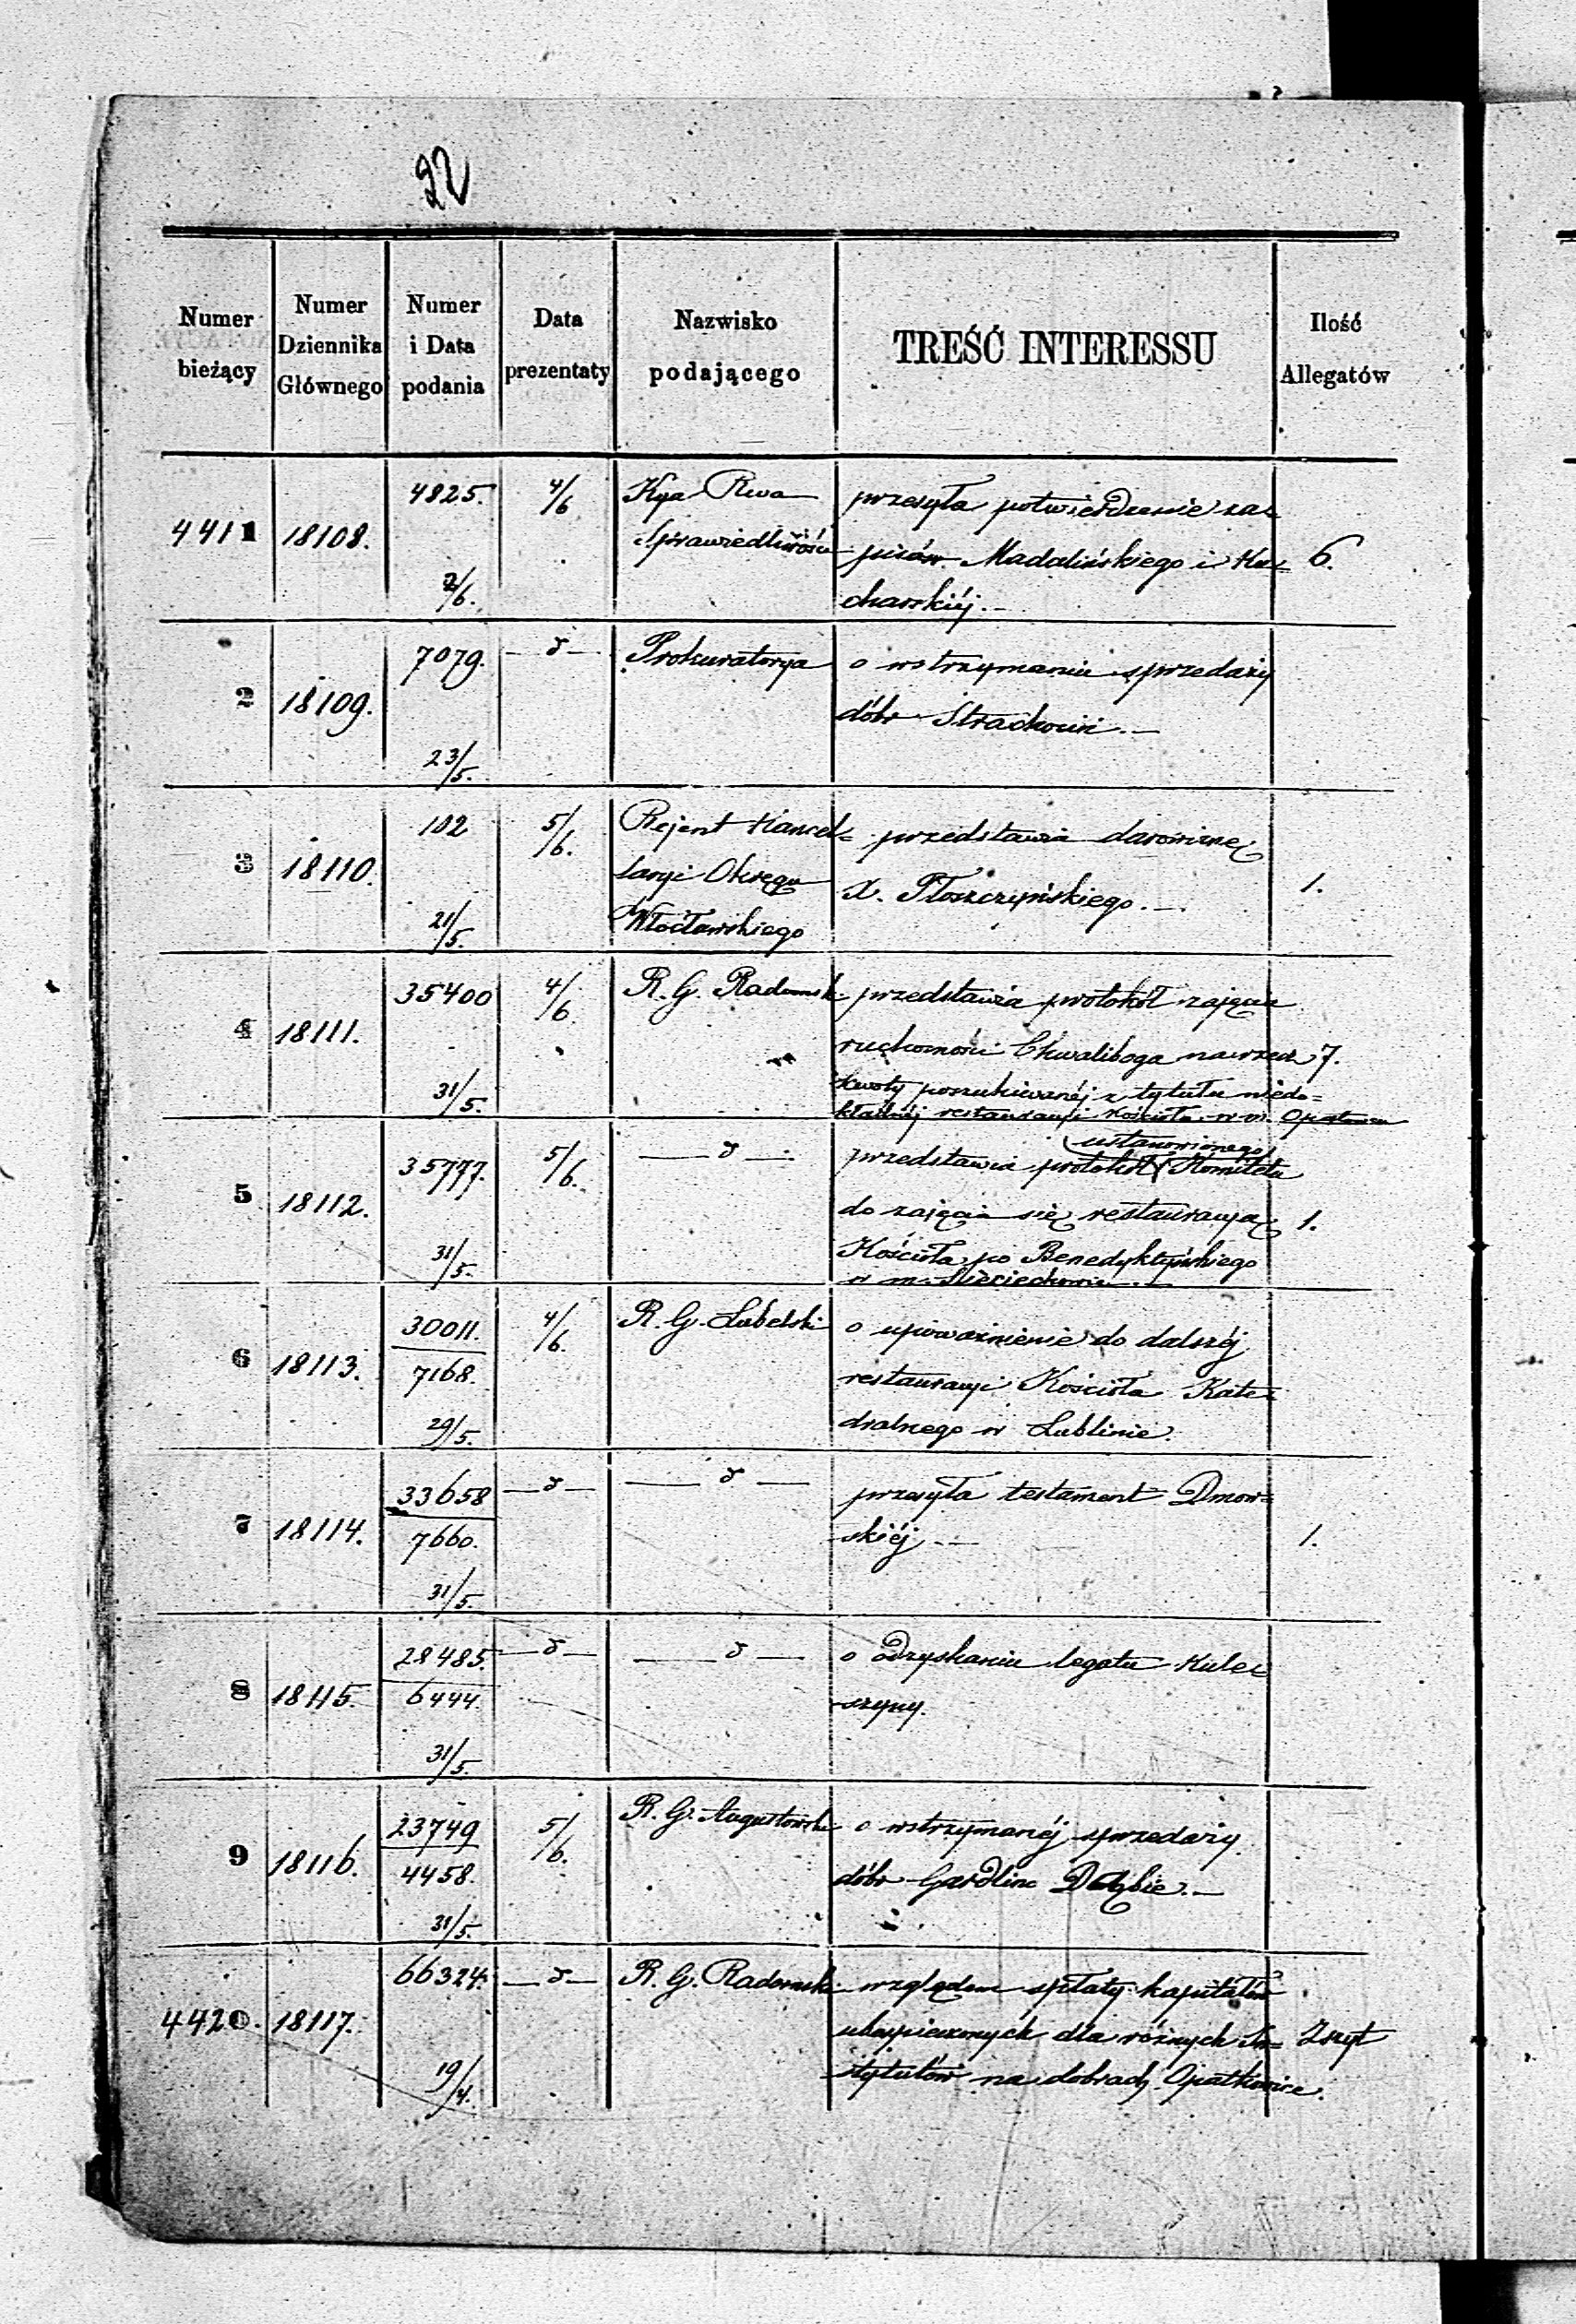 22
Numer bieżący
Numer Dziennika Głównego
Numer i Data podania
Data prezentaty
Nazwisko podającego
TREŚĆ INTERESSU
Ilość Allegatów
4411 18108. 4825. 2/6. 4/6 Kya Rwa
Sprawiedliwości
przesyła potwierdzenie za=
pisów Madalińskiego i Ku=
charskiéj.—
6.
2 18109. 7079. 23/5. —d— Prokuratorya
o wstrzymaniu sprzedaży
dóbr Strachocin.—
3 18110. 102 21/5. 5/6. Rejent Kancel=
laryi Okręgu
Włocławskiego
przedstawia darowiznę
X. Płoszczyńskiego.—
1.
4 18111. 35400 31/5. 4/6. R. G. Radomsk
przedstawia protokół zajęcia
ruchomości Chwaliboga na rzecz
kwoty poszukiwanéj z tytułu niedo=
kładnéj restauracyi Kościoła w m. Opatowcu
7.
5 18112. 35777. 31/5. 5/6. —d—
ustanowionego
przedstawia protokół Komitetu
do zajęcia się restauracyą
Kościoła po Benedyktyńskiego
w m. Sieciechowie.—
1.
6 18113. 30011. 7168. 29/5. 4/6. R. G. Lubelski
o upoważnienie do dalszéj
restauracyi Kościoła Kate=
dralnego w Lublinie.
7 18114. 33658 7660. 31/5. —d— —d—
przesyła testament Dmow=
skiéj.—
1.
8 18115. 28485. 6444. 31/5. —d— —d—
o odzyskaniu legatu Kule=
szyny.
9 18116. 23749 4458. 31/5. 5/6. R. G. Augustowski
o wstrzymanéj sprzedaży
dóbr Gardlin Dąbie.—
4420. 18117. 66324. 19/4. —d— R. G. Radomski
względem spłaty kapitałów
ubezpieczonych dla różnych In=
stytutów na dobrach Opatkowice.
Zszyt